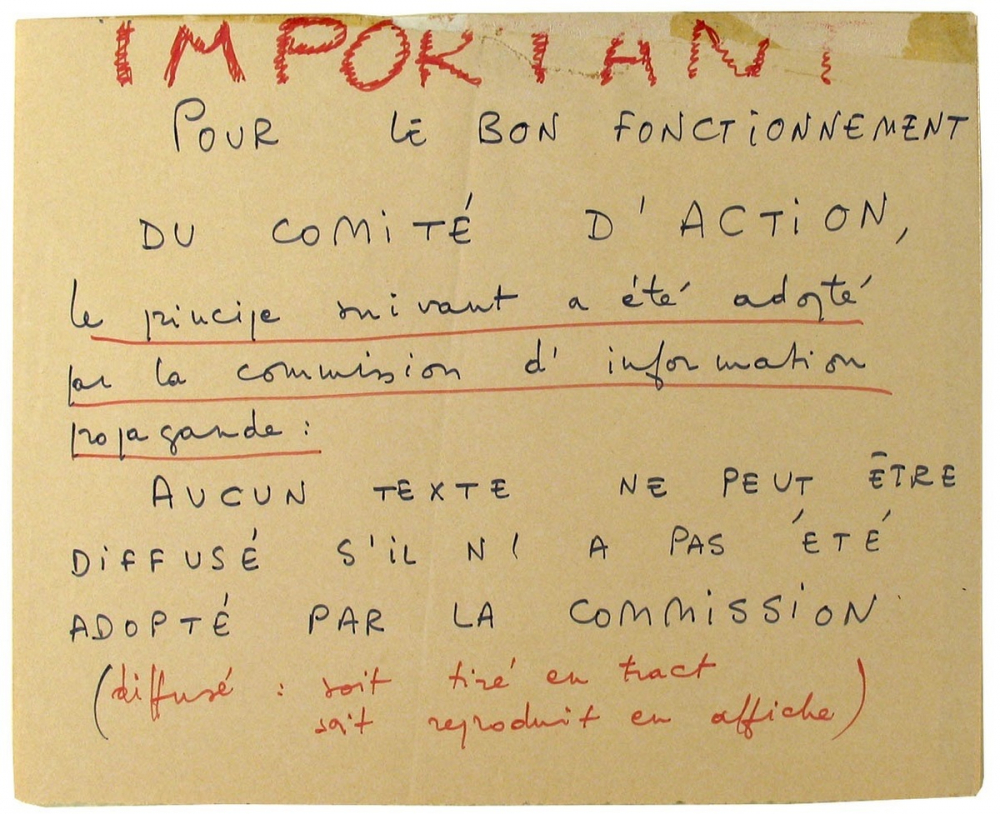 IMPORTANT
POUR LE BON FONCTIONNEMENT
DU COMITÉ D'ACTION,
le principe suivant a été adopté
par la commission d'information
propagande :
AUCUN TEXTE NE PEUT ÊTRE
DIFFUSÉ S'IL N'A PAS ÉTÉ
ADOPTÉ PAR LA COMMISSION
(diffusé : soit tiré en tract
soit reproduit en affiche)